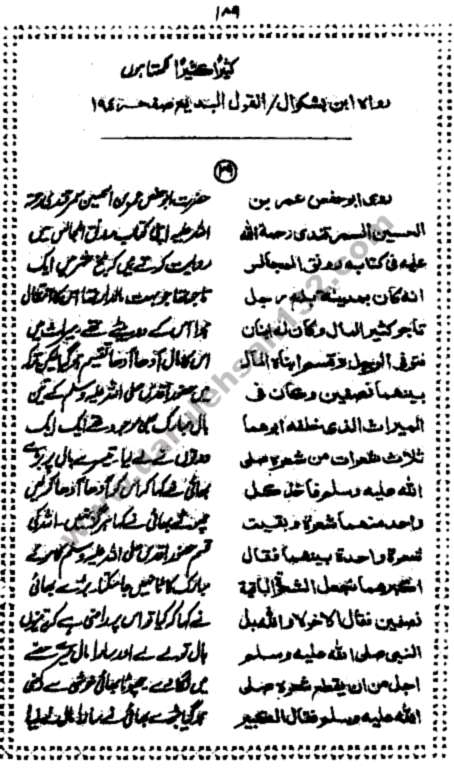 ۱۸۹
کثیرًا کثیرًا
رواہ ابن بشکوال/القول البدیع صفحہ
روی ابو حفص عمر بن
الحسین السمرقندی رحمة الله
علیه فی کتابه رونق المجالس
انه کان بمدینة بلخ رجل
تاجر کثیر المال وکان له ابنان
فتوفی الرجل وقسم ابناه المال
بینهما نصفین وکان فی
المیراث الذی خلفه ابوهما
ثلاث شعرات من شعره صلی
الله علیه وسلم فاخذ کل
واحد منهما شعرة وبقیت
شعرة واحدة بینهما فقال
اکبرهما نجعل الشعرة الباقیة
نصفین فقال الاخر لا والله بل
النبی صلی الله علیه وسلم
اجل من ان یقطع شعره صلی
الله علیه وسلم فقال الکبیر
حضرت ابو حفص عمر بن الحسین سمرقندی رحمۃ
اللہ علیہ اپنی کتاب رونق المجالس میں
روایت کرتے ہیں کہ بلخ شہر میں ایک
تاجر تھا جو بہت مالدار تھا اس کا انتقال
ہوا اس کے دو بیٹے تھے میراث میں
اس کا مال آدھا آدھا تقسیم ہو گیا لیکن ترکہ
میں حضور اقدس صلی اللہ علیہ وسلم کے تین
بال مبارک بھی موجود تھے ایک ایک
دونوں نے لے لیا تیسرے بال پر بڑے
بھائی نے کہا کہ اس کو آدھا آدھا کر لیں
چھوٹے بھائی نے کہا ہرگز نہیں اللہ کی
قسم حضور اقدس صلی اللہ علیہ وسلم کا موئے
مبارک کاٹا نہیں جا سکتا۔ بڑے بھائی
نے کہا کیا تو اس پر راضی ہے کہ تینوں
بال تو لے لے اور سارا مال میرے حصے
میں لگا دے۔ چھوٹا بھائی خوشی سے راضی
ہو گیا بڑے بھائی نے سارا مال لے لیا
www.darulehsan132.com